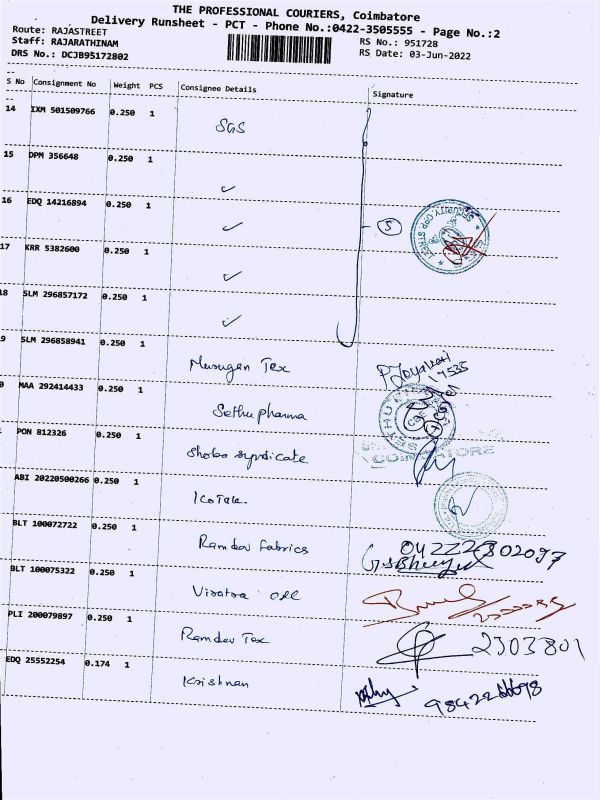 THE PROFESSIONAL COURIERS, Coimbatore
Delivery Runsheet - PCT - Phone No.:0422-3505555 - Page No.:2
Route: RAJASTREET
Staff: RAJARATHINAM
RS No.: 951728
DRS No.: DCJB95172802
RS Date: 03-Jun-2022
S No Consignment No Weight PCS Consignee Details Signature
14 IXM 501509766 0.250 1 SGS
15 DPM 356648 0.250 1 ✓
16 EDQ 14216894 0.250 1 ✓ 5
17 KRR 5382600 0.250 1 ✓
18 SLM 296857172 0.250 1 ✓
9 SLM 296858941 0.250 1 Murugan Tex
0 MAA 292414433 0.250 1 Sethu pharma
PON 812326 0.250 1 Shoba syndicate
COIMBATORE
ABI 20220500266 0.250 1
BLT 100072722 0.250 1 Ramdev fabrics
BLT 100075322 0.250 1
PLI 200079897 0.250 1 Ramdev Tex 2303801
EDQ 25552254 0.174 1 Krishnan